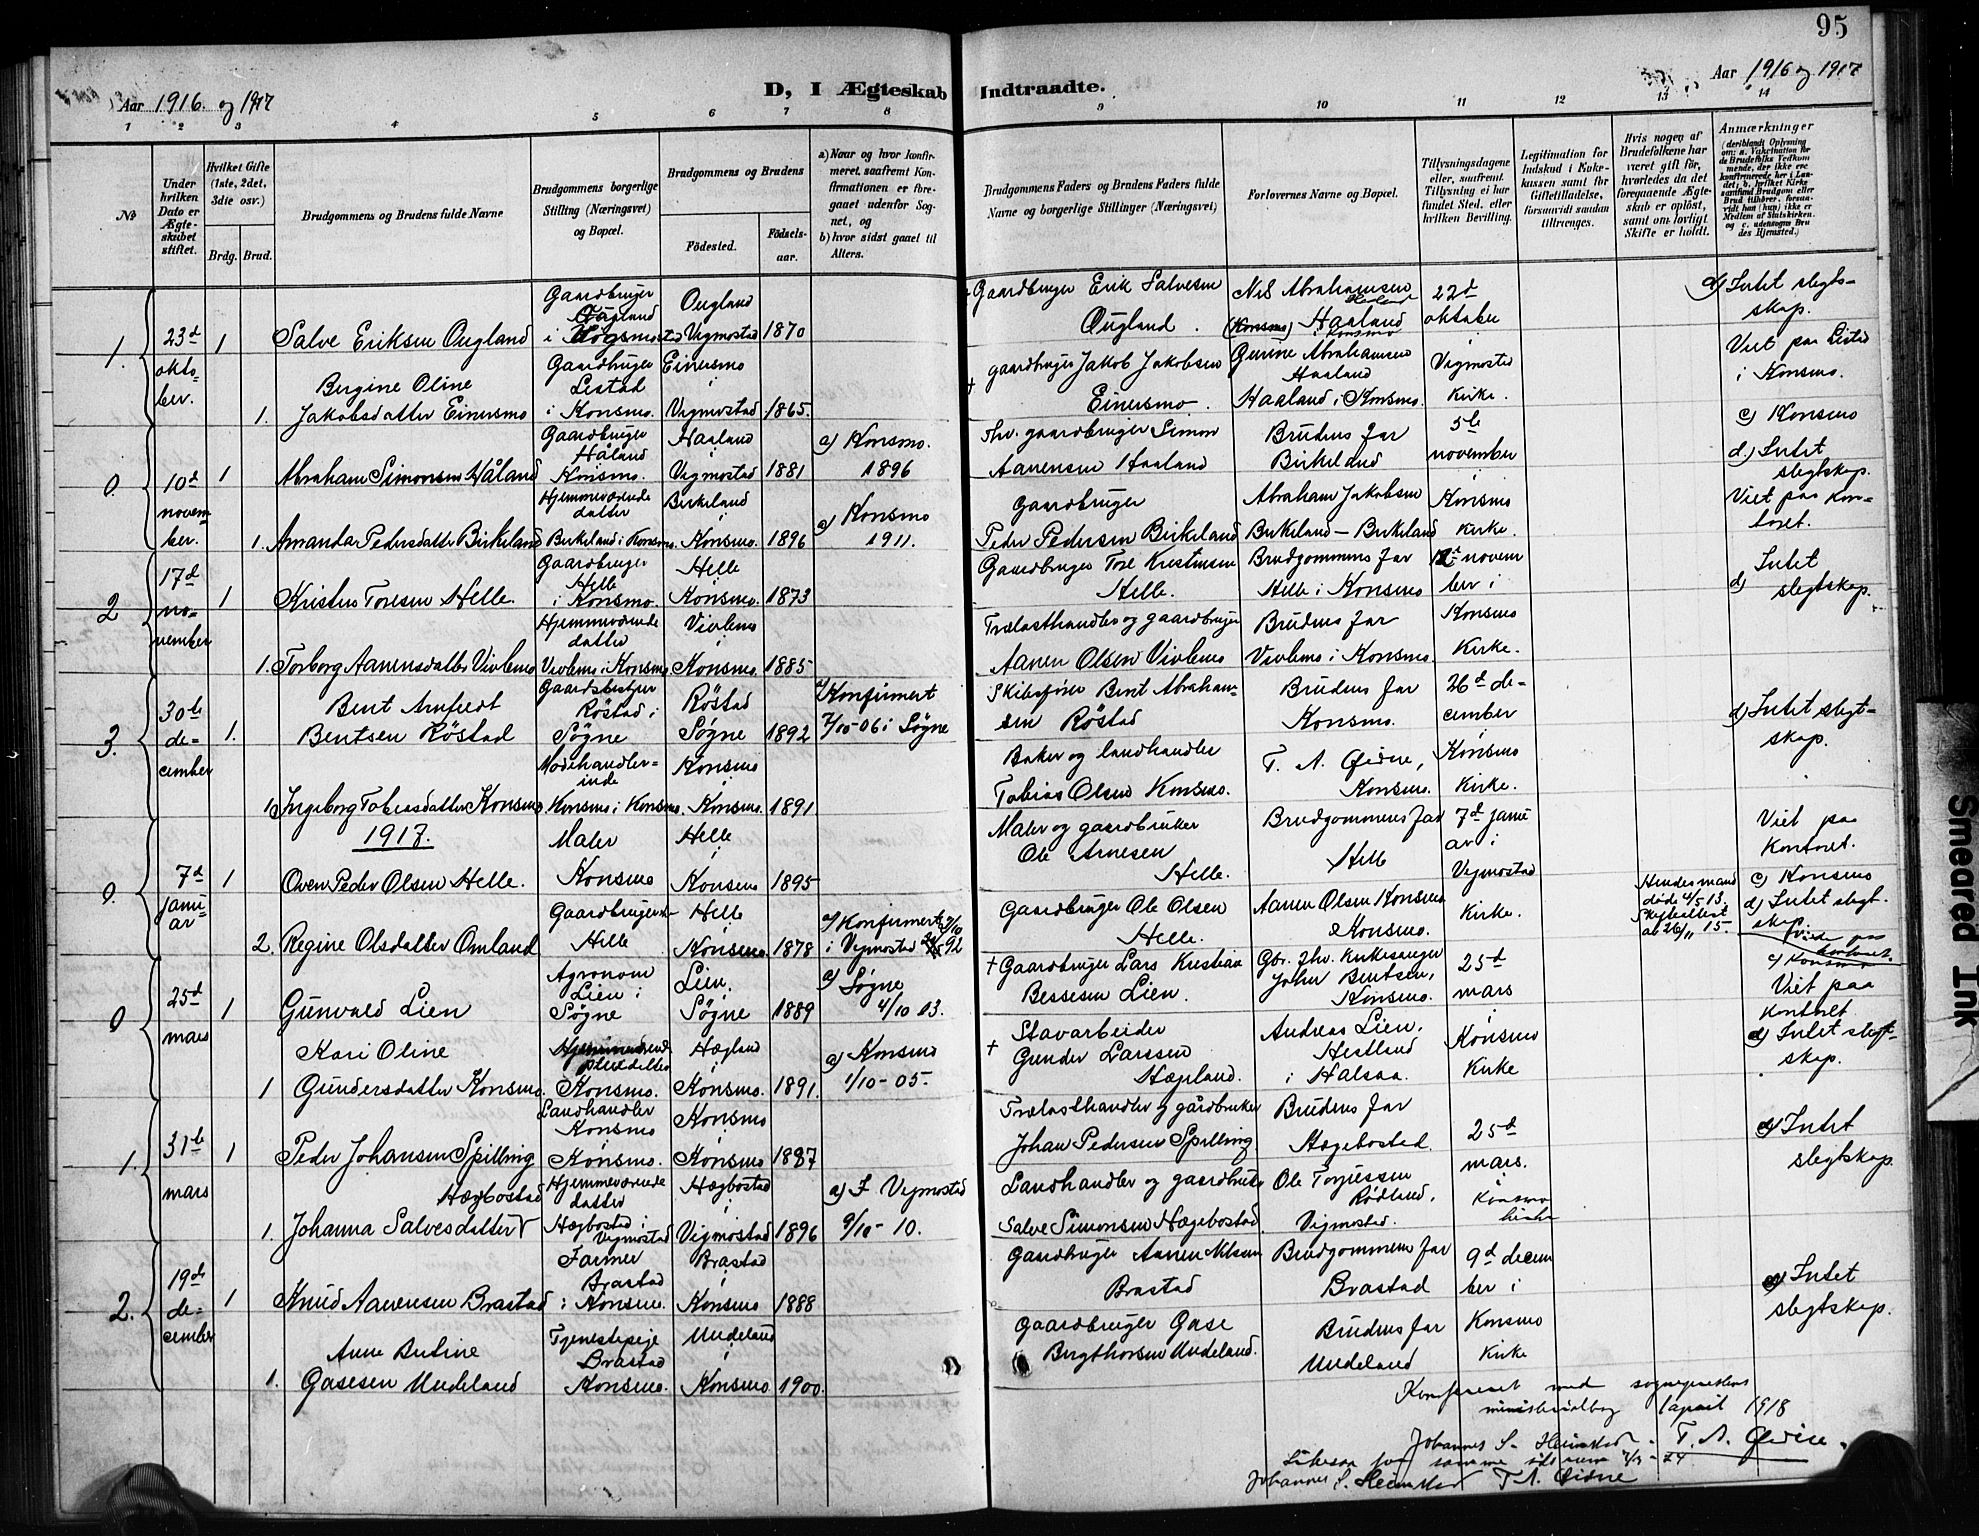 95
Aar 1916 og 1917
D, I Ægteskab Indtraadte.
Aar 1916 og 1917
1 2 3 4 5 6 7 8 9 10 11 12 13 14
No
Under hvilken Dato er Ægteskabet stiftet.
Hvilket Gifte (1ste, 2det, 3die osv.)
Brdg. Brud.
Brudgommens og Brudens fulde Navne
Brudgommens borgerlige Stilling (Næringsvei) og Bopæl.
Brudgommens og Brudens
Fødested.
Fødselsaar.
a) Naar og hvor konfirmeret, saafremt Konfirmationen er foregaaet udenfor Sognet, og
b) hvor sidst gaaet til Alters.
Brudgommens Faders og Brudens Faders fulde Navne og borgerlige Stillinger (Næringsvei)
Forlovernes Navne og Bopæl.
Tillysningsdagene eller, saafremt Tillysning ei har fundet Sted, efter hvilken Bevilling.
Legitimation for Indskud i Enkekassen samt for Giftetilladelse, forsaavidt saadan tiltrænges.
Hvis nogen af Brudefolkene har været gift før, hvorledes da det foregaaende Ægteskab er opløst, samt om lovligt Skifte er holdt.
Anmærkninger
1. 23d oktober. 1 Salve Eriksen Ougland
Gaardbruger Ougland i
Ougland i Vegmostad 1870
Gaardbruger Erik Salvesen Ougland.
Nils Abrahamsen Haaland i Konsmo
22d oktober i Vigmostad Kirke.
d) Intet slegtskap.
1. Bergine Oline Jakobsdatter Einersmo
Gaardbruger Lestad i Konsmo.
Einersmo i Vigmostad 1865.
+ gaardbruger Jakob Jakobsen Einersmo.
Gurine Abrahamsen Haaland
Haaland i Konsmo.
Viet paa Lestad i Konsmo.
c) Konsmo
0. 10d november. 1 Abraham Simonsen Håland
Gaardbruger Håland Konsmo.
Haaland i Vigmostad 1881
a) Konsmo. 1896
fhv. gaardbruger Simon Aanensen Haaland
Brudens far Birkeland
5te november i Konsmo Kirke.
d) Intet slegtskap.
Viet paa kontoret.
1. Amanda Pedersdatter Birkeland
Hjemmeværende datter Birkeland i Konsmo.
Birkeland i Konsmo. 1896
a) Konsmo 1911.
Gaardbruger Peder Pedersen Birkeland
Abraham Jakobsen Birkeland – Birkeland
2 17d november 1 Kristen Toresen Helle.
Gaardbruger Helle i Konsmo.
Helle i Konsmo. 1873
Gaardbruger Tore Kristensen Helle.
Brudgommens far Helle i Konsmo
12t november i Konsmo Kirke.
d) Intet slegtskap.
1. Torborg Aanensdatter Vivlemo
Hjemmeværende datter Vivlemo i Konsmo
Vivlemo i Konsmo. 1885
Trælasthandler og gaardbruger Aanen Olsen Vivlemo
Brudens far Vivlemo i Konsmo.
3. 30te december 1. Bent Arnfredt Bentsen Röstad
Gaardsbestyrer Röstad i Søgne
Röstad Søgne 1892
a) Konfirmert 7/10-06 i Søgne
Skibsfører Bent Abrahamsen Röstad
Brudens far Konsmo.
26d december i Konsmo Kirke.
d) Intet slegtskap.
1 Ingeborg Tobiasdatter Konsmo
Modehandlerinde Konsmo i Konsmo.
Konsmo i Konsmo. 1891.
Baker og landhandler Tobias Olsen Konsmo.
T. A. Øidne, Konsmo.
1917.
0. 7d januar 1 Oven Peder Olsen Helle.
Maler Konsmo
Helle i Konsmo 1895
Maler og gaardbruker Ole Arnesen Helle.
Brudgommens far Helle
7d januar i Vegmostad Kirke.
Viet paa Kontoret.
c) Konsmo
2. Regine Olsdatter Omland
Helle
Helle i Konsmo 1878
a) Konfirmert i Vegmostad 92
Gaardbruger Ole Olsen Helle.
Aanen Olsen Konsmo Konsmo.
Hendes mand døde 4/5 13. Skifteattest av 26/11 15.
d) Intet slegtskap.
0 25d mars 1 Gunvald Lien
Agronom Lien i Søgne
Lien. Søgne 1889
a) Søgne 4/10 03.
+ Gaardbruger Lars Kristian Bessesen Lien.
Gbr. fhv. kirkesanger John Bentsen, Konsmo.
25d mars i Konsmo Kirke
Viet paa kontoret
d) Intet slegtskap.
1 Kari Oline Gundersdatter Konsmo.
Konsmo.
Hægland i Konsmo. 1891.
a) Konsmo 1/10-05.
+ Stavarbeider Gunder Larssen Hægland.
Andreas Lien, Hestland i Halsaa.
1. 31te mars 1 Peder Johansen Spilling
Landhandler Konsmo i Konsmo.
Konsmo i Konsmo 1887
Trælasthandler og gårdbruker Johan Pedersen Spilling.
Brudens far Hægebostad.
25d mars. i Konsmo kirke
d) Intet slegtskap.
1. Johanna Salvesdatter Hægbostad
Hjemmeværende datter Hægbostad i Vegmostad
Hægbostad i Vigmostad 1896
a) I Vigmostad 9/10-10.
Landhandler og gaardbruker Salve Simonsen Hægebostad
Ole Torjussen Rødland, Vigmostad.
2. 19de december 1 Knud Aanensen Brastad
Farmer Brastad i Konsmo.
Brastad i Konsmo 1888
Gaardbruger Aanen Nilsen Brastad
Brudgommens far Brastad
9d december i Konsmo Kirke
d) Intet slegtskap.
1. Anne Bertine Gasesen Undeland
Tjenestepige Brastad Konsmo.
Undeland i Konsmo 1900.
Gaardbruger Gase Bergthorsen Undeland.
Brudens far Undeland
Konfereret med sogneprestens ministerialbog 1 april 1918
Johannes S. Heimstad. T. A. Øidne.
Johannes S. Heimstad T. A. Øidne
Smeared Ink